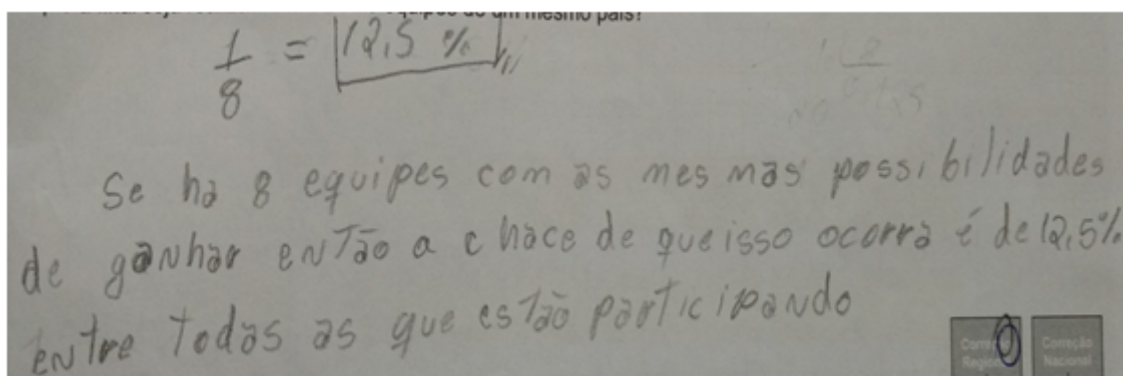 de um mesmo país?
1/8 = 12,5 %
Se há 8 equipes com as mesmas possibilidades
de ganhar então a chace de que isso ocorra é de 12,5%
entre todas as que estão participando
Correção Regional
0
Correção Nacional